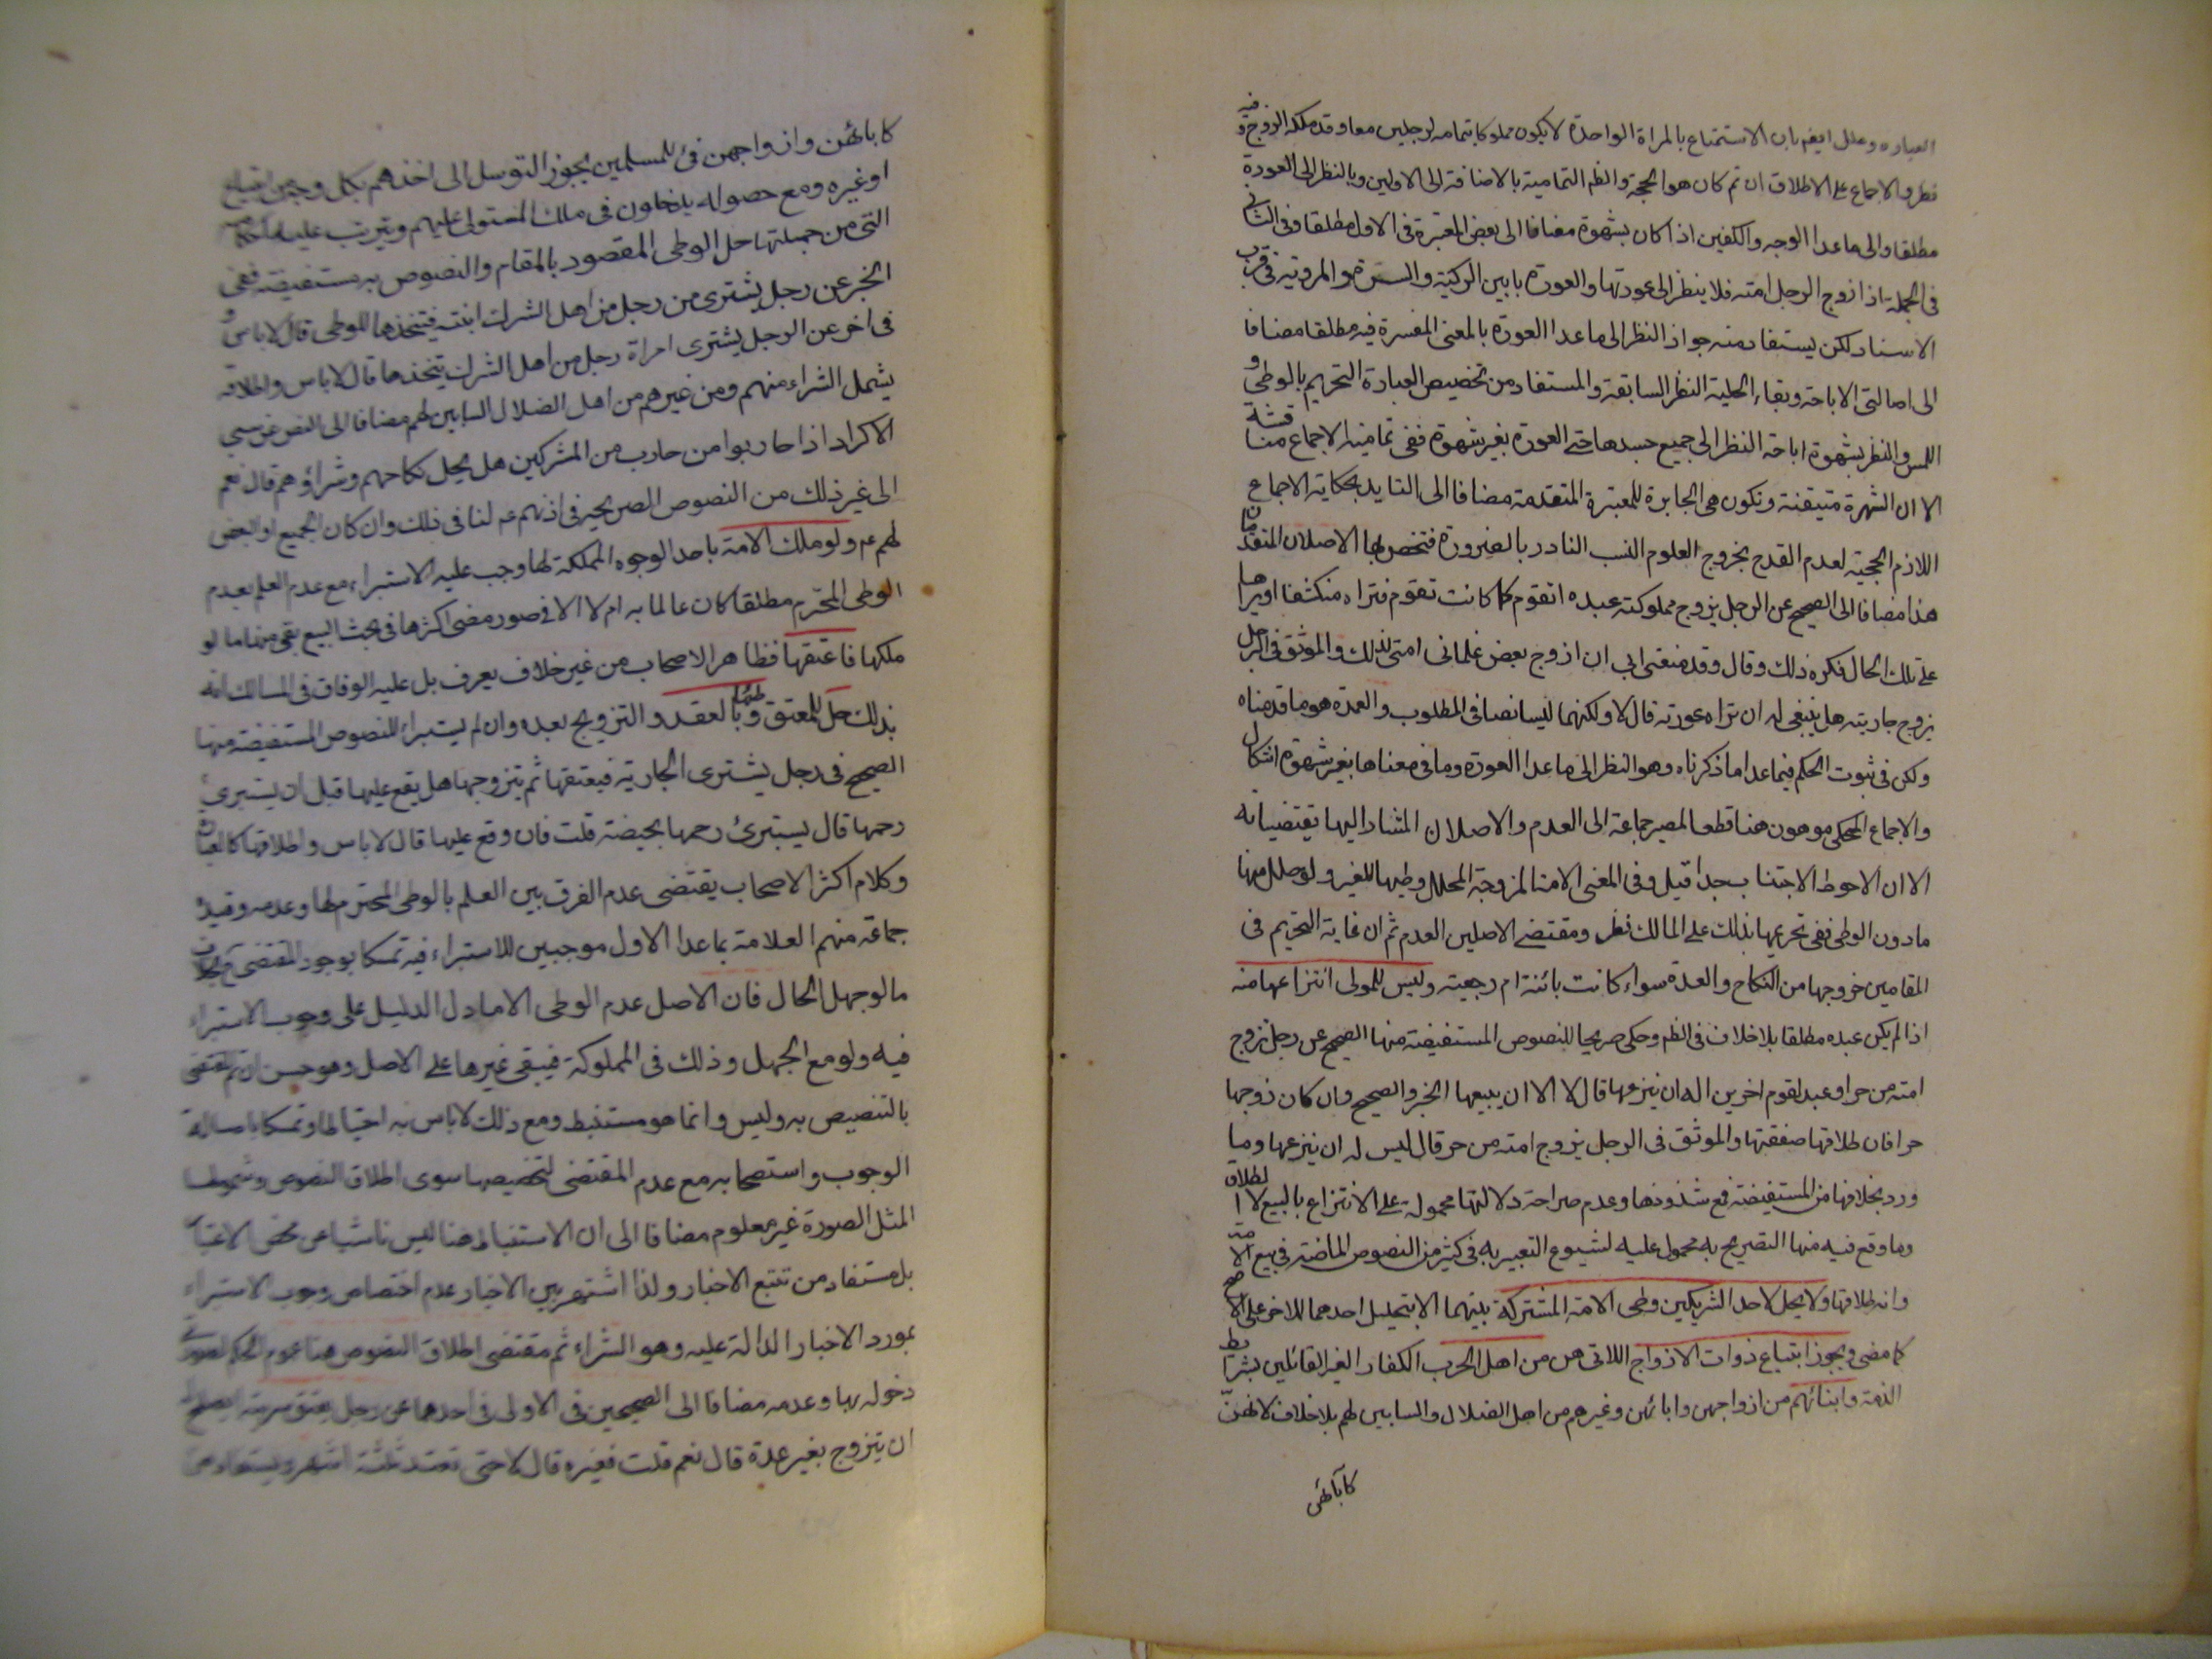 العباره وعلل ايضم بان الاستمتاع بالمراة الواحدة لا يكون مملوكا بتمامه لرجلين معا وقد ملكه الزوج وفيه
نظر والاجماع على الاطلاق ان تم كان هو الحجة والظم التمامية بالاضافة الى الاولين وبالنظر الى العورة
مطلقا والى ما عدا الوجه والكفين اذا كان بشهوة مضافا الى بعض المعتبرة فى الاول مطلقا وفى الثانى
فى الجملة اذا زوج الرجل امته فلا ينظر الى عورتها والعورة ما بين الركبة والسرة والمروية فى قرب
الاسناد لكن يستفاد منه جواز النظر الى ما عدا العورة بالمعنى المفسرة فيه مطلقا مضافا
الى اصالتى الاباحة وبقاء الحلية النظر السابقة والمستفاد من تخصيص العبارة التحريم بالوطى و
اللمس والنظر بشهوة اباحة النظر الى جميع جسدها حتى العورة بغير شهوة ففى تمامية الاجماع مناقشة
الا ان الشهرة متيقنة وتكون هى الجابرة للمعتبرة المتقدمة مضافا الى التايد بحكاية الاجماع
اللازم الحجية لعدم القدح بخروج العلوم النسب النادر بالضرورة فتخص بها الاصلان المتقدمان
هذا مضافا الى الصحيح عن الرجل يزوج مملوكته عبده اتقوم كما كانت تقوم فتراه منكشفا او يراها
على تلك الحال فكره ذلك وقال وقد منعنى ابى ان ازوج بعض غلمانى امتى لذلك والموثق فى الرجل
يزوج جاريته هل ينبغى له ان تراه عورته قال لا ولكنهما ليسا نصا فى المطلوب والعمدة هو ما قدمناه
ولكن فى ثبوت الحكم فيما عدا ما ذكرناه وهو النظر الى ما عدا العورة وما فى معناها بغير شهوة اشكال
والاجماع المحكى موهون هنا قطعا لمصير جماعة الى العدم والاصلان المشار اليها يقتضيانه
الا ان الاحوط الاجتناب جدا قيل وفى المعنى الامة المزوجة المحلل وطيها للغير ولو حلل منها
ما دون الوطى ففى تحريمها بذلك على المالك نظر ومقتضى الاصلين العدم ثم ان غاية التحريم فى
المقامين خروجها من النكاح والعدة سواء كانت بائنة ام رجعية وليس للمولى انتزاعها منه
اذا لم يكن عبده مطلقا بلا خلاف فى الظم وحكى صريحا للنصوص المستفيضة منها الصحيح عن رجل يزوج
امته من حر او عبد لقوم اخرين اله ان ينزعها قال لا الا ان يبيعها الخبر والصحيح وان كان زوجها
حرا فان طلاقها صفقتها والموثق فى الرجل يزوج امته من حر قال ليس له ان ينزعها وما
ورد بخلافها من المستفيضة فمع شذوذها وعدم صراحة دلالتها محمولة على الانتزاع بالبيع لا الطلاق
وما وقع فيه منها التصريح به محمول عليه لشيوع التعبير به فى كثير من النصوص الماضية فى بيع الامة
وانه طلاقها ولا يحل لاحد الشريكين وطى الامة المشتركة بينهما الا بتحليل احدهما للاخر على الاصح
كما مضى ويجوز ابتياع ذوات الازواج اللاتى هن من اهل الحرب الكفار الغير القائلين بشرايط
الذمة وابنائهم من ازواجهن وابائهن وغيرهم من اهل الضلال والسابين لهم بلا خلاف لانهن
كآبائهن
كابائهن وازواجهن فئ للمسلمين يجوز التوسل الى اخذهم بكل وجه من ابتياع
اوغيره ومع حصوله يدخلون فى ملك المستولى عليهم ويترتب عليه احكامه
التى من جملتها حل الوطى المقصود بالمقام والنصوص به مستفيضة ففى
الخبر عن رجل يشترى من رجل من اهل الشرك ابنته فيتخذها للوطى قال لا باس و
فى اخر عن الرجل يشترى امراة رجل من اهل الشرك يتخذها قال لا باس واطلاقه
يشمل الشراء منهم ومن غيرهم من اهل الضلال السابين لهم مضافا الى النص عن سبى
الاكراد اذا حاربوا من حارب من المشركين هل يحل نكاحهم وشراؤهم قال نعم
الى غير ذلك من النصوص الصريحة فى اذنهم عم لنا فى ذلك وان كان الجميع او البعض
لهم عم ولو ملك الامة باحد الوجوه المملكة لها وجب عليه الاستبراء مع عدم العلم بعدم
الوطى المحترم مطلقا كان عالما به ام لا الا فى صور مضى اكثرها فى بحث البيع بقى منها ما لو
ملكها فاعتقها فظاهر الاصحاب من غير خلاف يعرف بل عليه الوفاق فى المسالك انه
بذلك حل للمعتق وطيها بالعقد والتزويج بعده وان لم يستبراء للنصوص المستفيضة منها
الصحيح فى رجل يشترى الجارية فيعتقها ثم يتزوجها هل يقع عليها قبل ان يستبرئ
رحمها قال يستبرئ رحمها بحيضة قلت فان وقع عليها قال لا باس واطلاقها كالعبارة
وكلام اكثر الاصحاب يقتضى عدم الفرق بين العلم بالوطى المحترم لها وعدمه وقيده
جماعة منهم العلامة بما عدا الاول موجبين للاستبراء فيه تمسكا بوجود المقتضى فيه بخلاف
ما لو جهل الحال فان الاصل عدم الوطى الا ما دل الدليل على وجوب الاستبراء
فيه ولو مع الجهل وذلك فى المملوكة فيبقى غيرها على الاصل وهو حسن ان تم المقتضى
بالتنصيص به وليس وانما هو مستنبط ومع ذلك لا باس به احتياطا وتمسكا باصالة
الوجوب واستصحابه مع عدم المقتضى لتخصيصها سوى اطلاق النصوص وشمولها
لمثل الصورة غير معلوم مضافا الى ان الاستنباط هنا ليس ناشيا عن محض الاعتبار
بل مستفاد من تتبع الاخبار ولذا اشتهر بين الاخيار عدم اختصاص وجوب الاستبراء
بمورد الاخبار الدالة عليه وهو الشراء ثم مقتضى اطلاق النصوص هنا عموم الحكم لصورتى
دخوله بها وعدمه مضافا الى الصحيحين فى الاولى فى احدهما عن رجل يعتق سريته ايصلح له
ان يتزوج بغير عدة قال نعم قلت فغيره قال لا حتى تعتد ثلثة اشهر